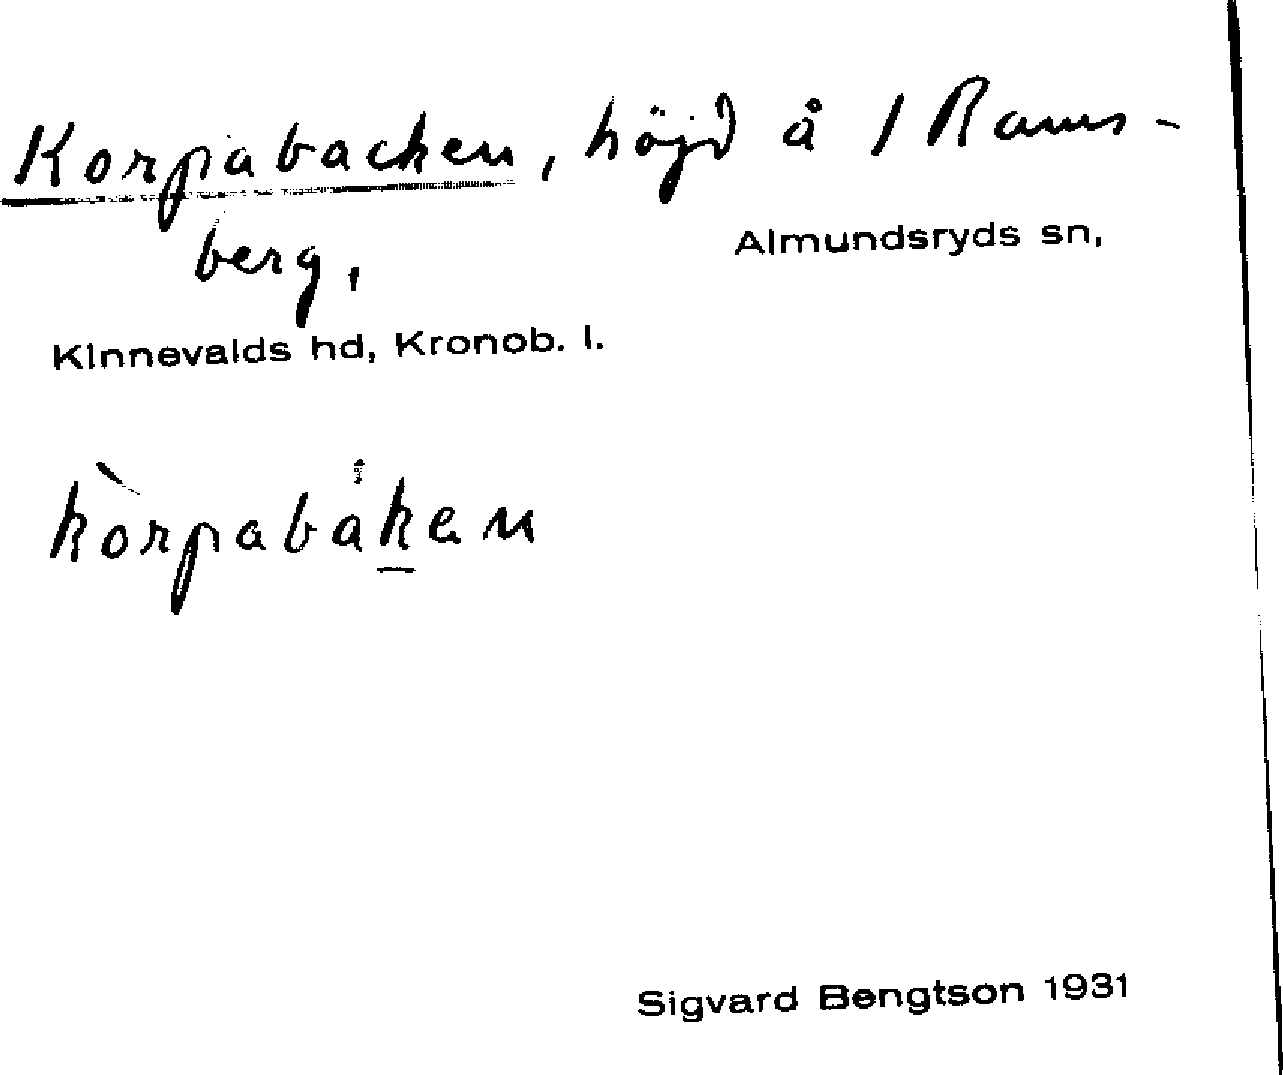 Korpabacken, höjd å 1 Rams-
berg,
Almundsryds sn,
Kinnevalds hd, Kronob. l.
kòrpabákan
Sigvard Bengtson 1931